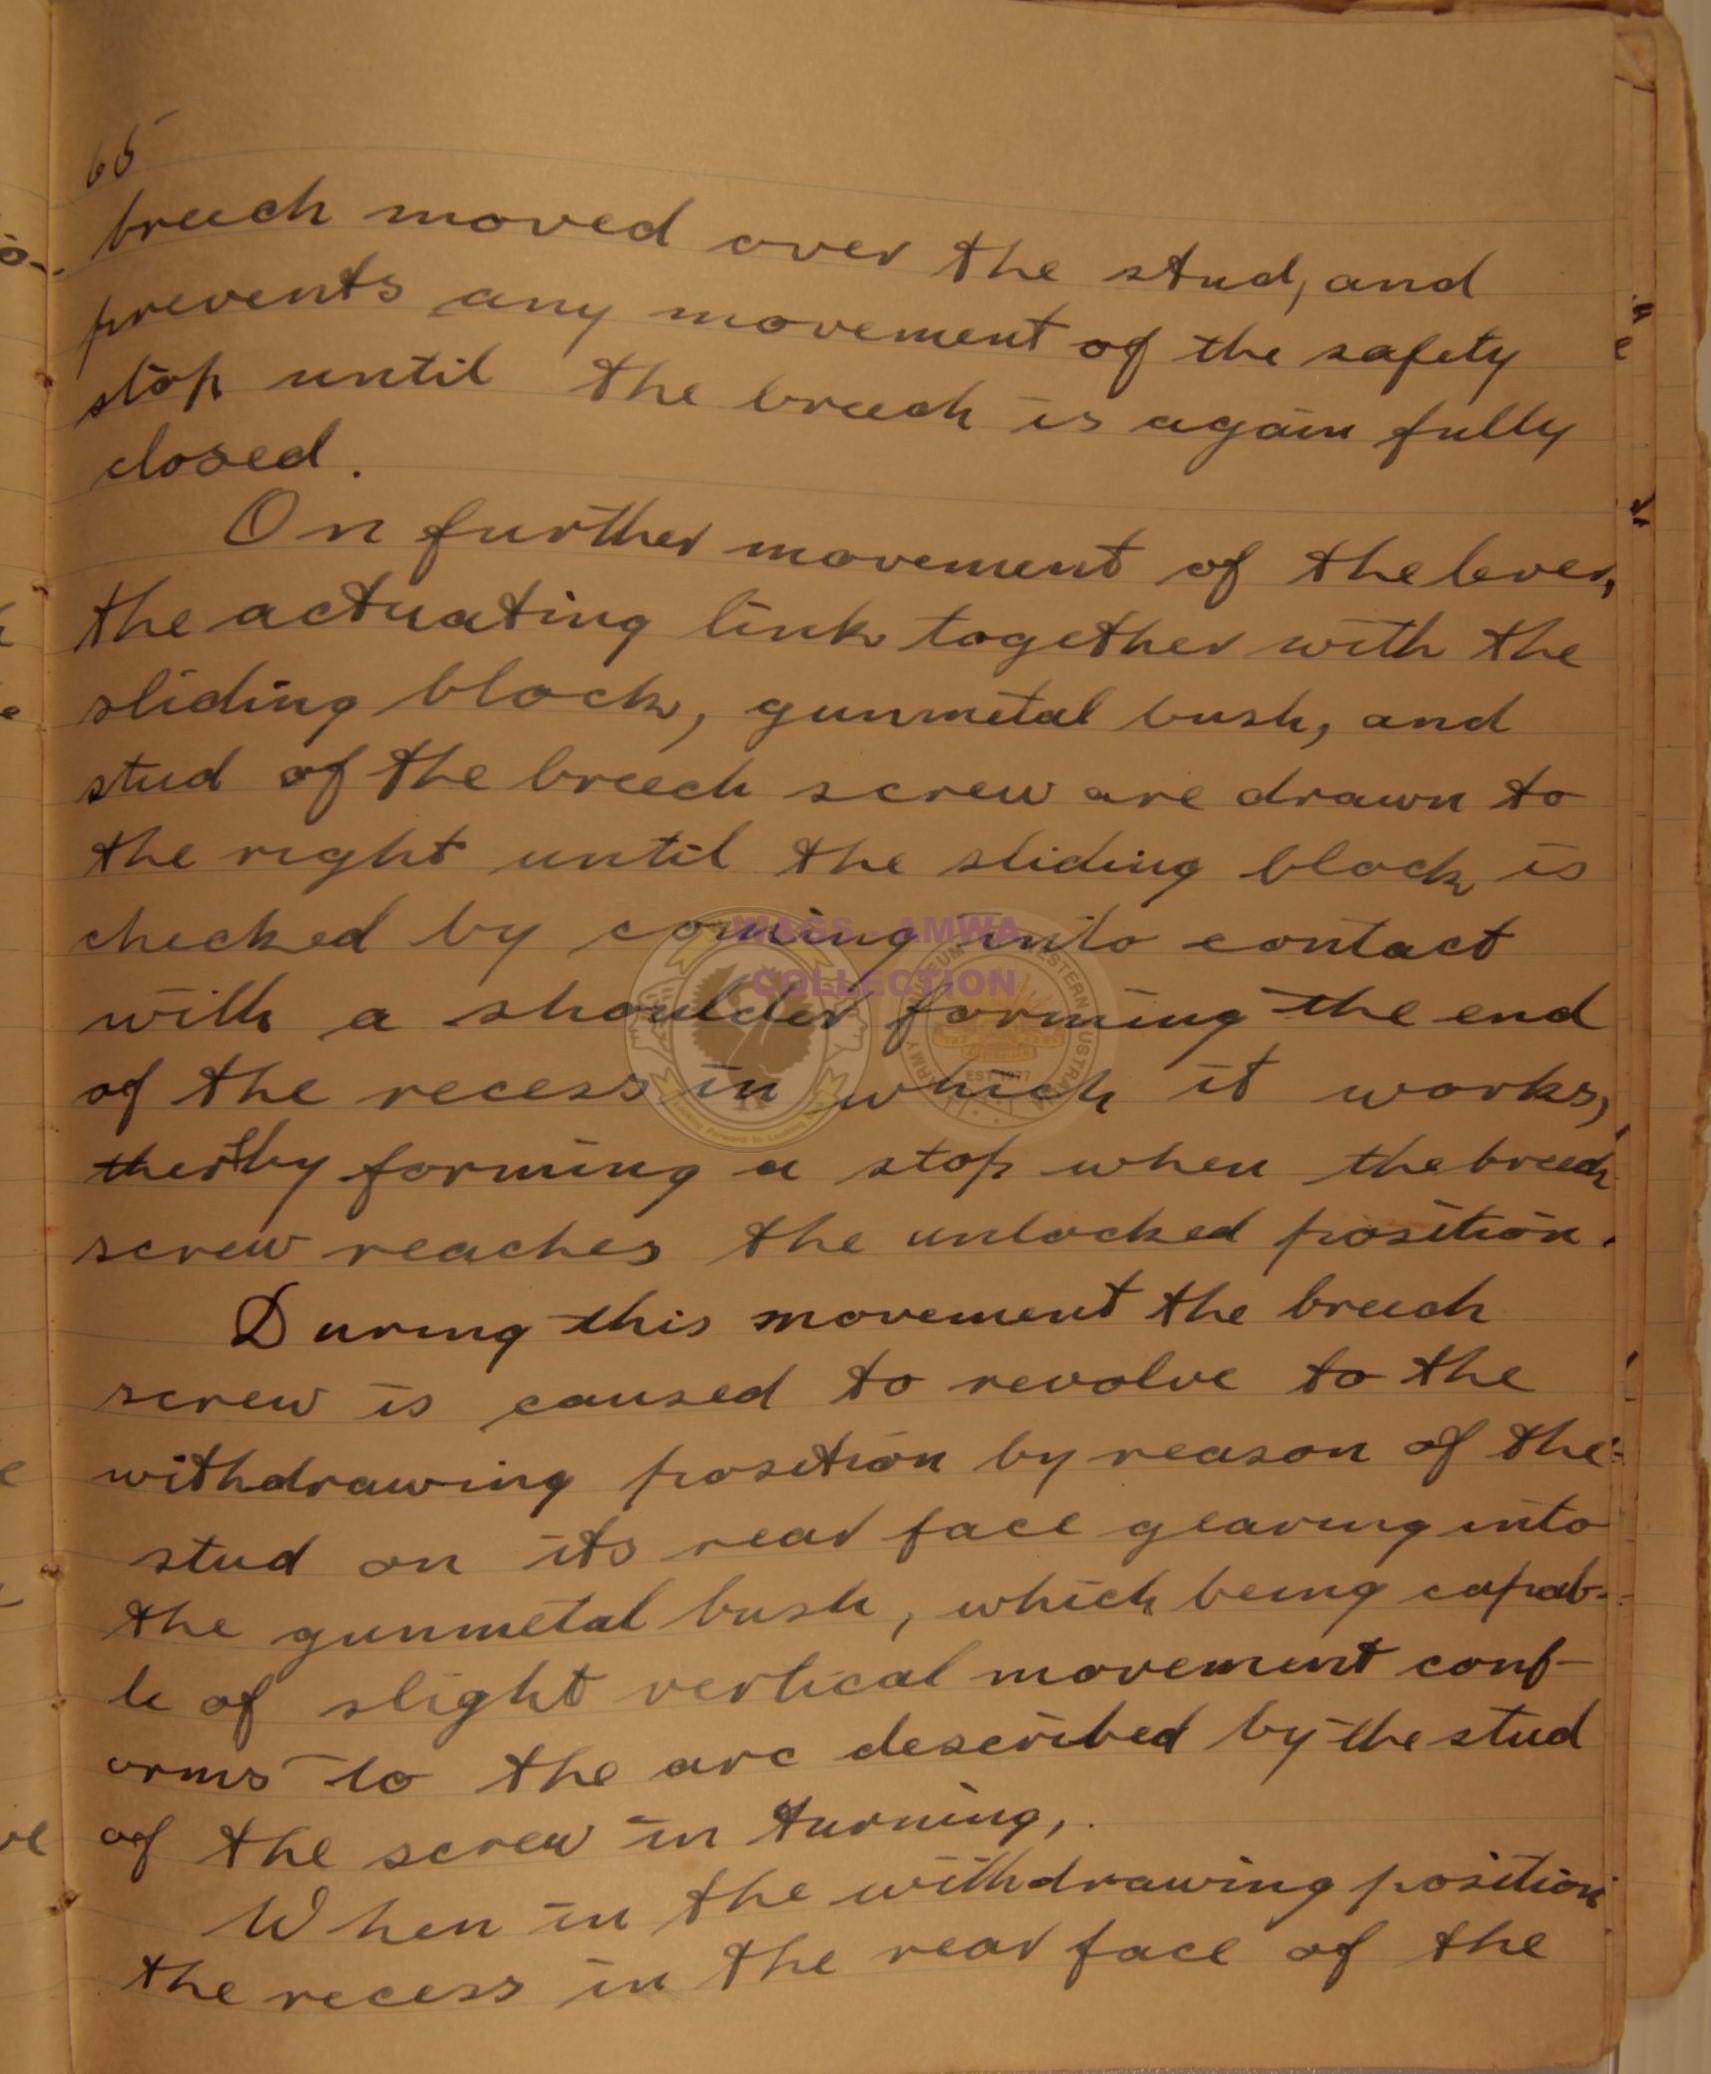 65
breech moved over the stud, and
prevents any movement of the safety
stop until the breech is again fully
closed.
On further movement of the lever,
the actuating link together with the
sliding block, gunmetal bush, and
stud of the breech screw are drawn to
the right until the sliding block is
checked by coming into contact
with a shoulder forming the end
of the recess in which it works,
thereby forming a stop when the breech
screw reaches the unlocked position.
During this movement the breech
screw is caused to revolve to the
withdrawing position by reason of the
stud on its rear face gearing into
the gunmetal bush, which being capab-
le of slight vertical movement conf-
orms to the arc described by the stud
of the screw in turning,.
When in the withdrawing position
the recess in the rear face of the
WAGS - AMWA
COLLECTION
EST 1977